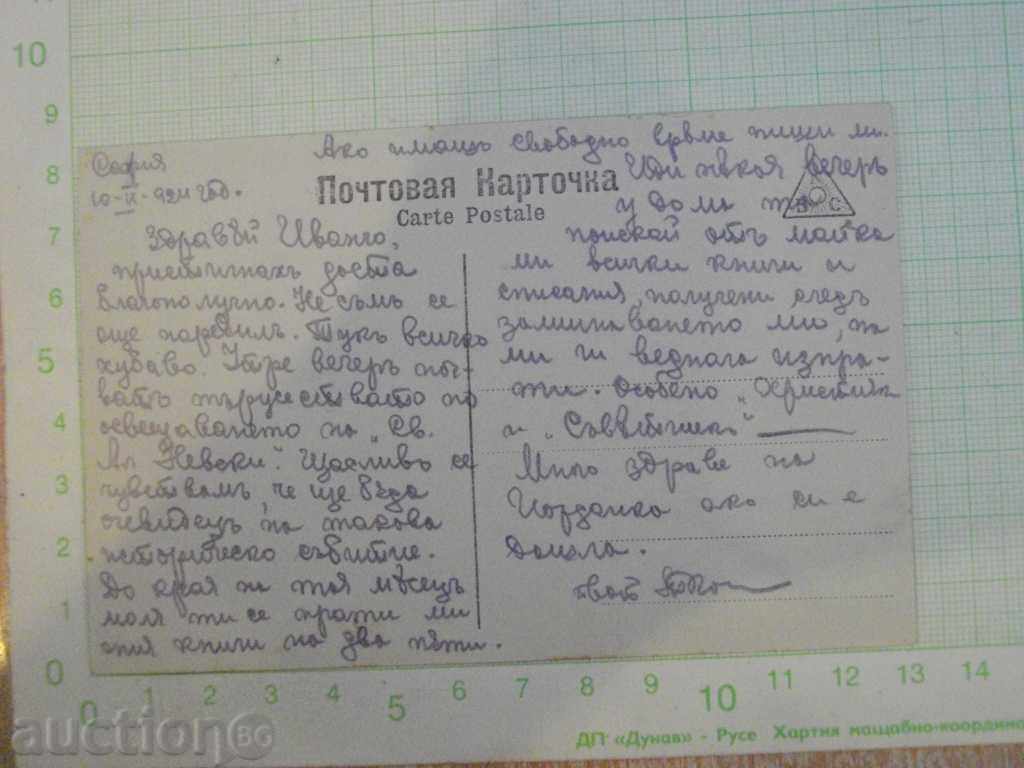 София
10-II-924 год.
Ако имашъ свободно време пиши ми.
Почтовая Карточка
Carte Postale
В С
Здравѣй Иванчо,
пристигнахъ доста
благополучно. Не съмъ се
още наредилъ. Тукъ всичко
хубаво. Утре вечеръ поч-
ватъ тържествата по
освещаването на „Св.
Ал. Невски". Щастливъ се
чувствамъ, че ще бѫда
очевидецъ на такова
историческо събитие.
До края на тоя мѣсецъ
моля ти се прати ми
ония книги на два пѫти.
Иди нѣкоя вечеръ
у дома та
поискай отъ майка
ми всички книги и
списания, получени следъ
заминаването ми, та
ми ги веднага изпра-
ти. Особено
и
Много здраве на
Йорданка ако си е
дошла.
твой
10
9
8
7
6
5
4
3
2
1
0
0 1 2 3 4 5 6 7 8 9 10 11 12 13 14
ДП «Дунав» - Русе Хартия мащабно-координа
auction BG